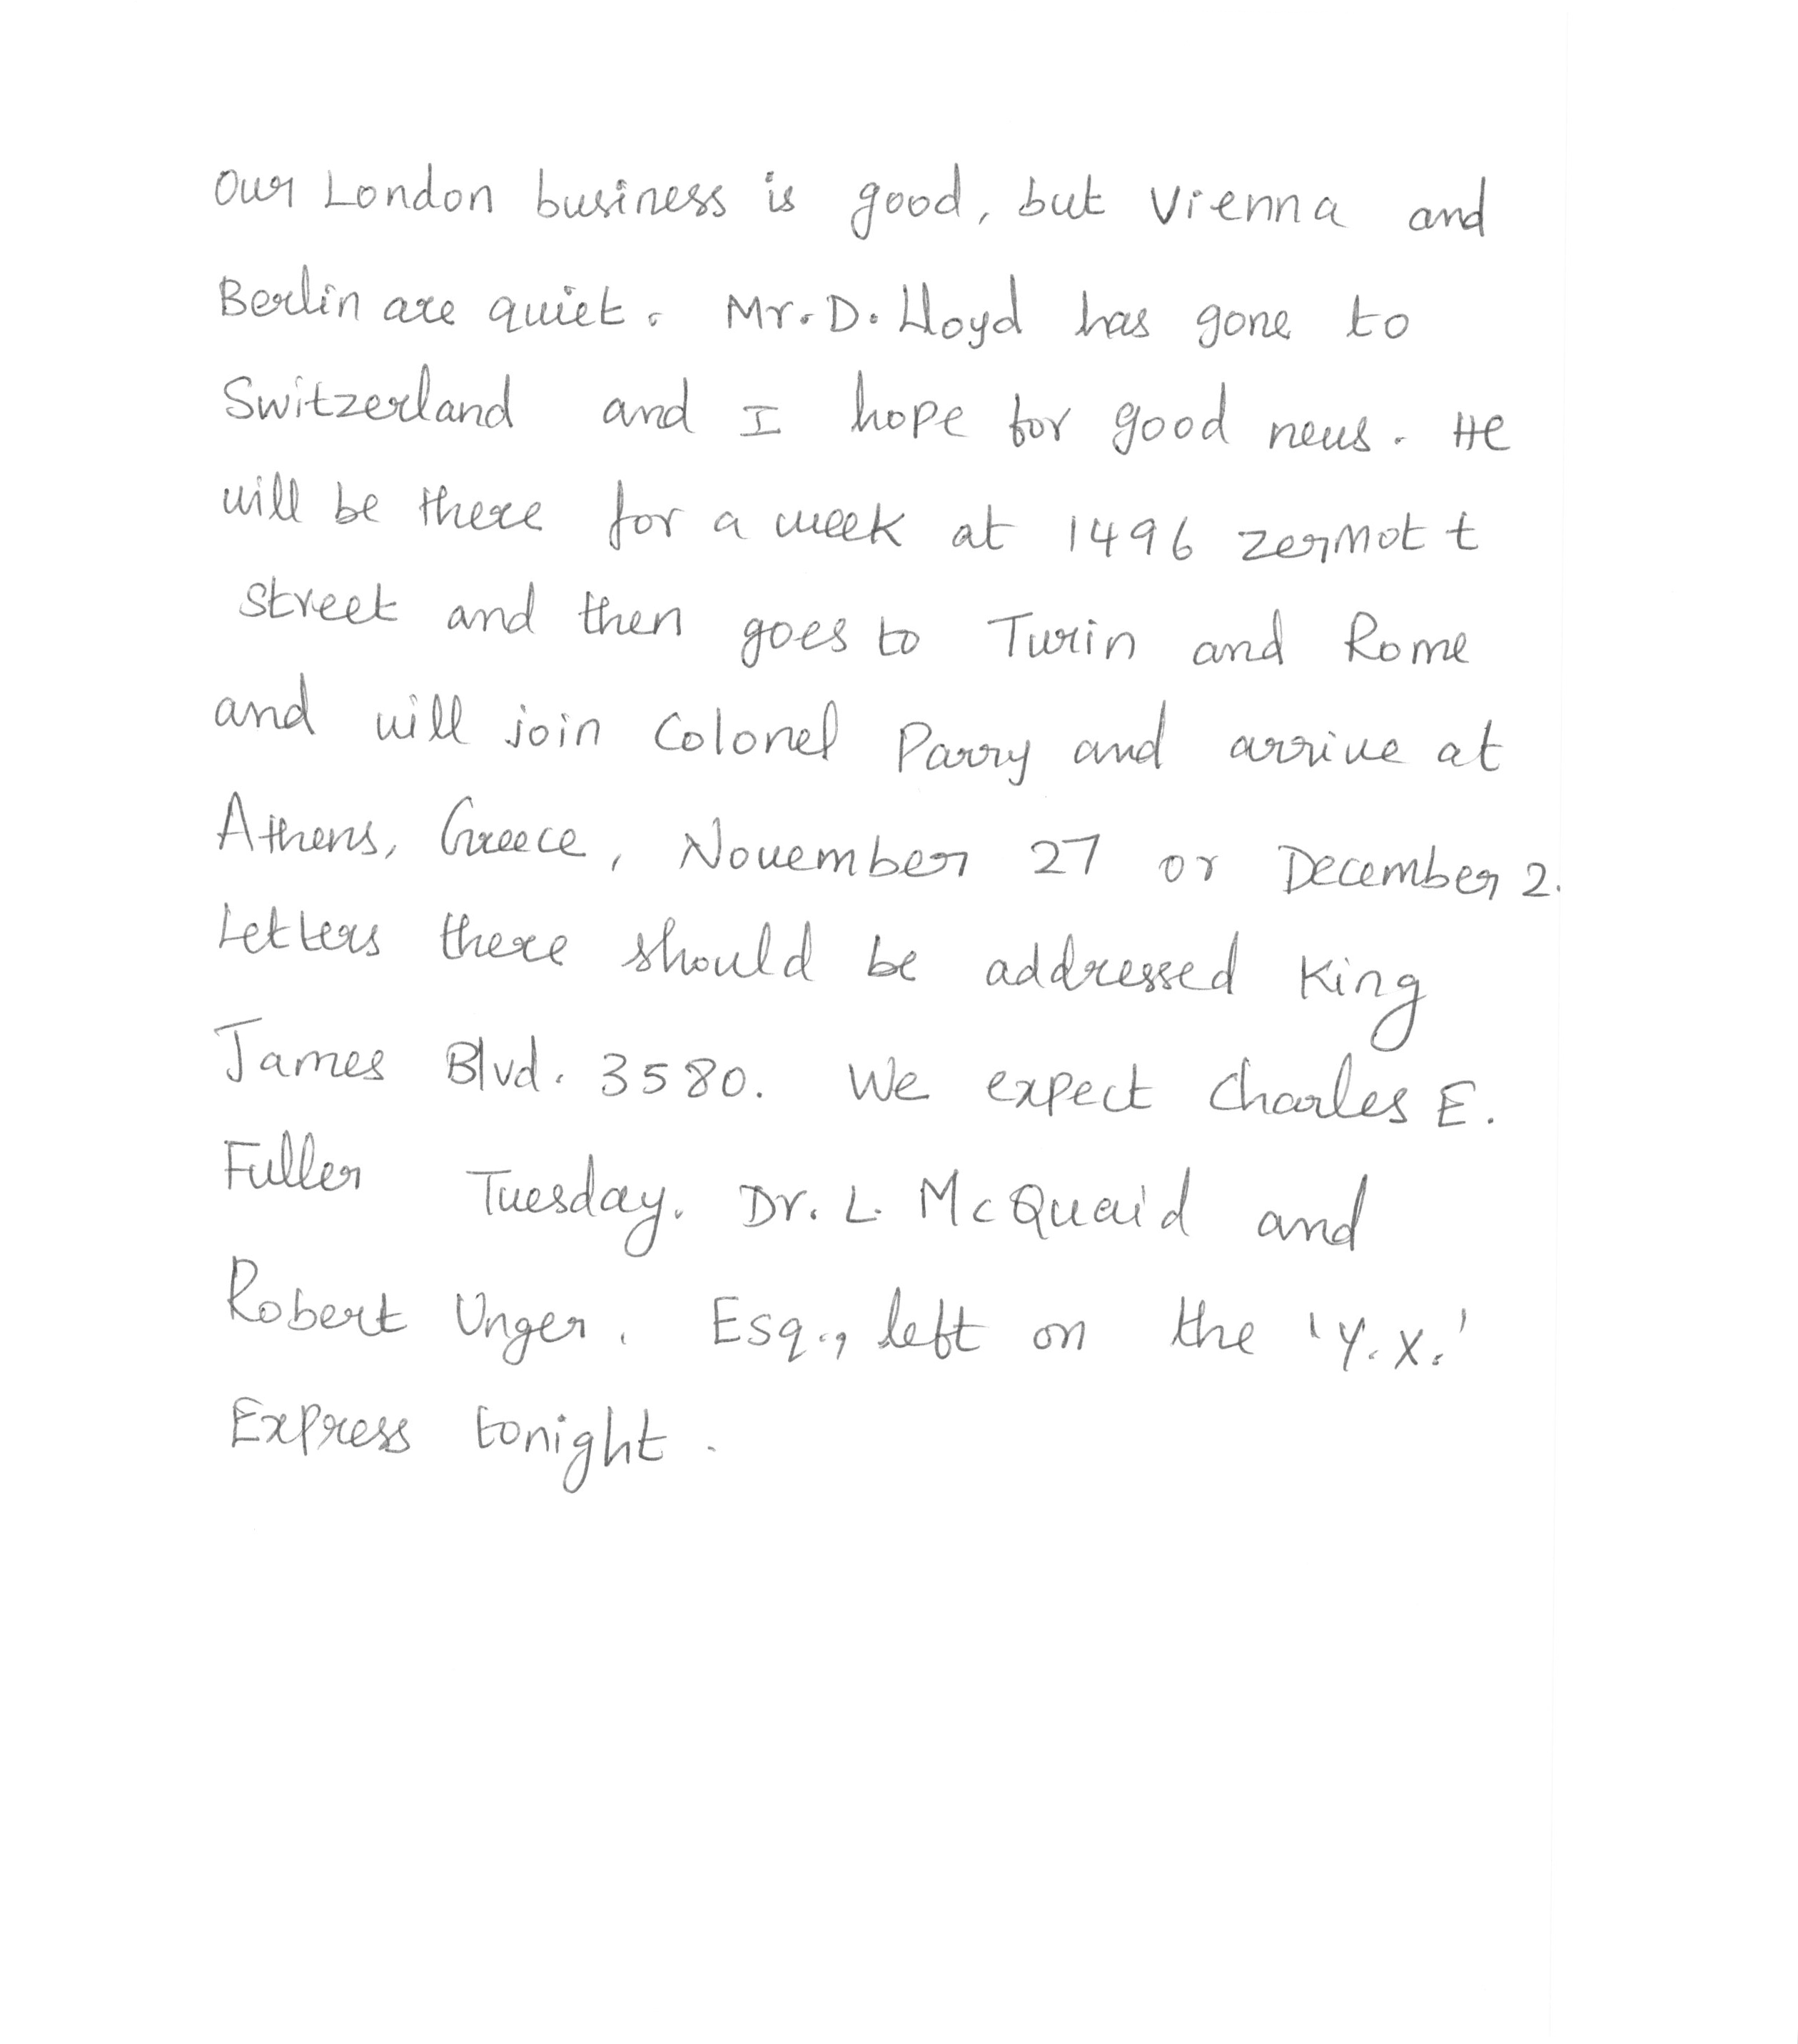 Our London business is good, but Vienna and
Berlin are quiet. Mr. D. Lloyd has gone to
Switzerland and I hope for good news. He
will be there for a week at 1496 zermot t
street and then goes to Turin and Rome
and will join Colonel Parry and arrive at
Athens, Greece, November 27 or December 2.
Letters there should be addressed King
James Blvd. 3580. We expect Charles E.
Fuller Tuesday. Dr. L. McQuaid and
Robert Unger. Esq., left on the 'Y.X.'
Express tonight.